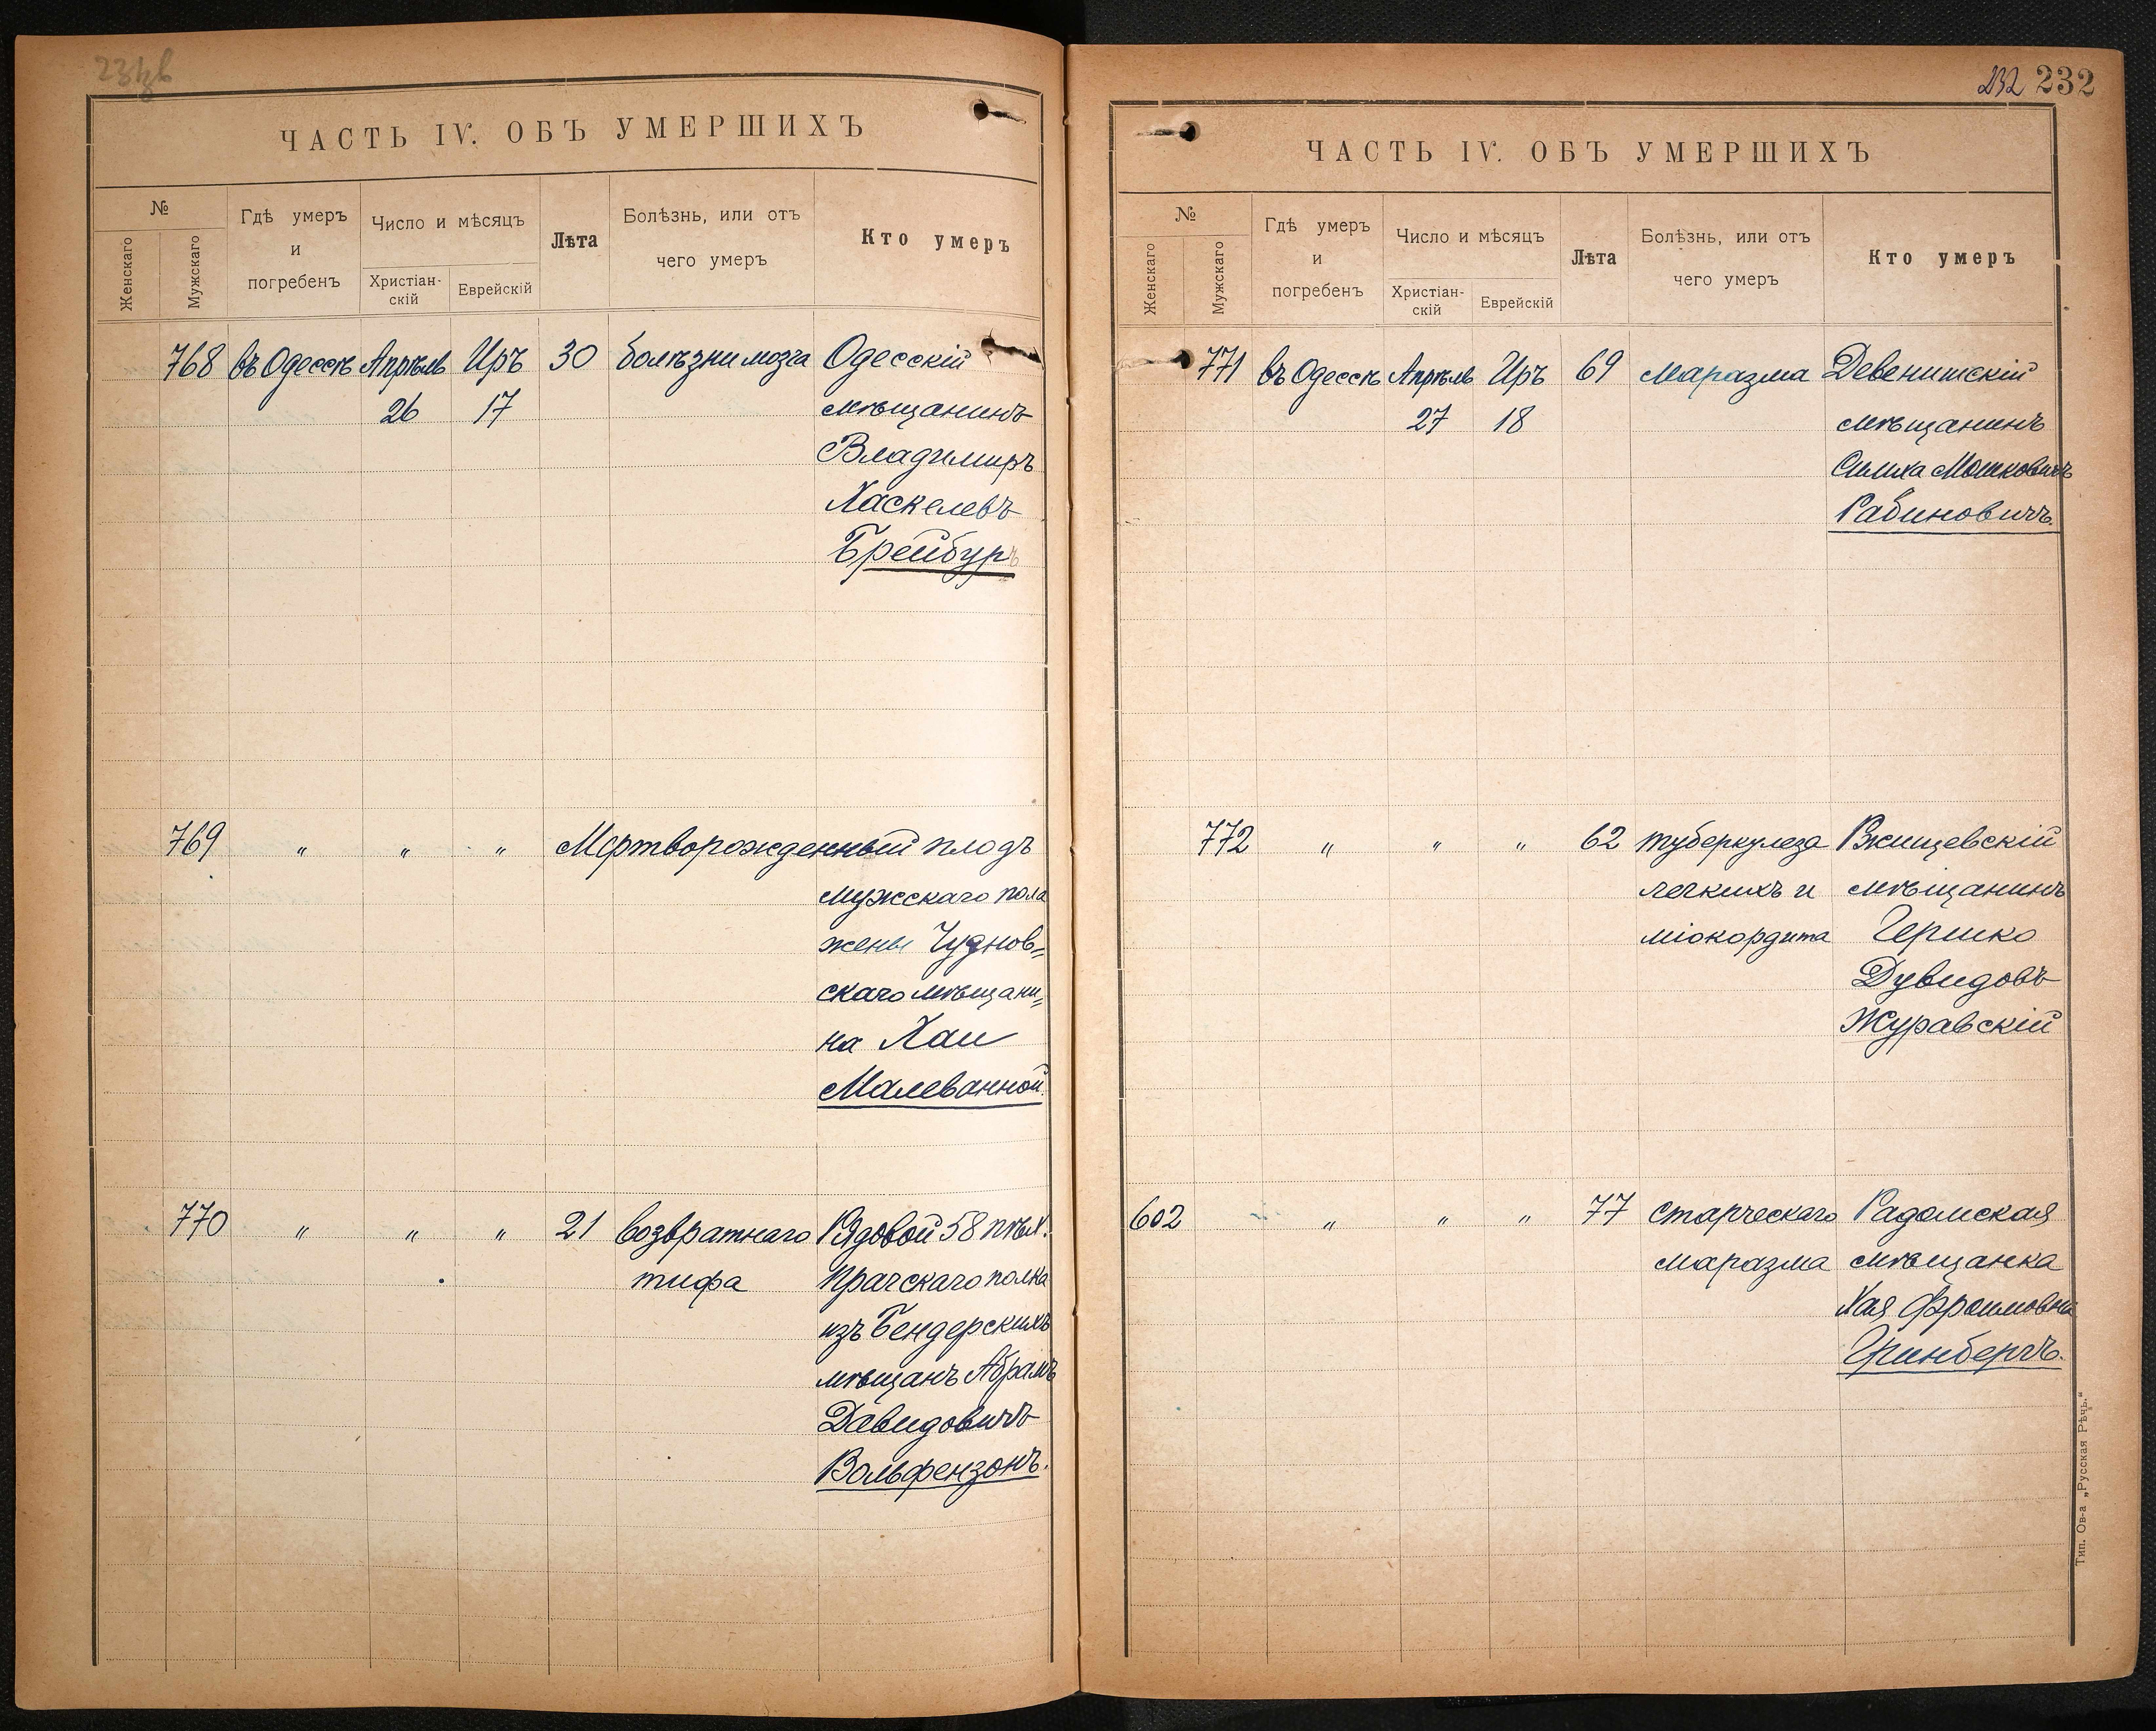 ЧАСТЬ IV. ОБЪ УМЕРШИХЪ
№
Женскаго
Мужскаго
Гдѣ умеръ
и
погребенъ
Число и мѣсяцъ
Христіан-
скій
Еврейскій
Лѣта
Болѣзнь, или отъ
чего умеръ
Кто умеръ
768 въ Одессѣ Апрѣль Иръ 30 болѣзни мозга Одесскій
26 17 мѣщанинъ
Владимиръ
Хаскелевъ
Брейбуръ
769 " " " Мертворожденный плодъ
мужскаго пола
жены Чуднов=
скаго мѣщани=
на Хаи
Малеванной.
770 " " " 21 возвратнаго Рядовой 58 пѣх.
тифа Прагскаго полка
изъ Бендерскихъ
мѣщанъ Абрамъ
Давидовичъ
Вольфензонъ.
232 232
ЧАСТЬ IV. ОБЪ УМЕРШИХЪ
№
Женскаго
Мужскаго
Гдѣ умеръ
и
погребенъ
Число и мѣсяцъ
Христіан-
скій
Еврейскій
Лѣта
Болѣзнь, или отъ
чего умеръ
Кто умеръ
771 въ Одессѣ Апрѣль Иръ 69 маразма Девенишскій
27 18 мѣщанинъ
Симха Мошковичъ
Рабиновичъ.
772 " " " 62 туберкулеза Ржищевскій
легкихъ и мѣщанинъ
міокордита Гершко
Дувидовъ
Журавскій
602 " " " 77 старческаго Радомская
маразма мѣщанка
Хая Фроимовна
Гринбергъ.
Тип. Ов-а „Русская Рѣчь.“